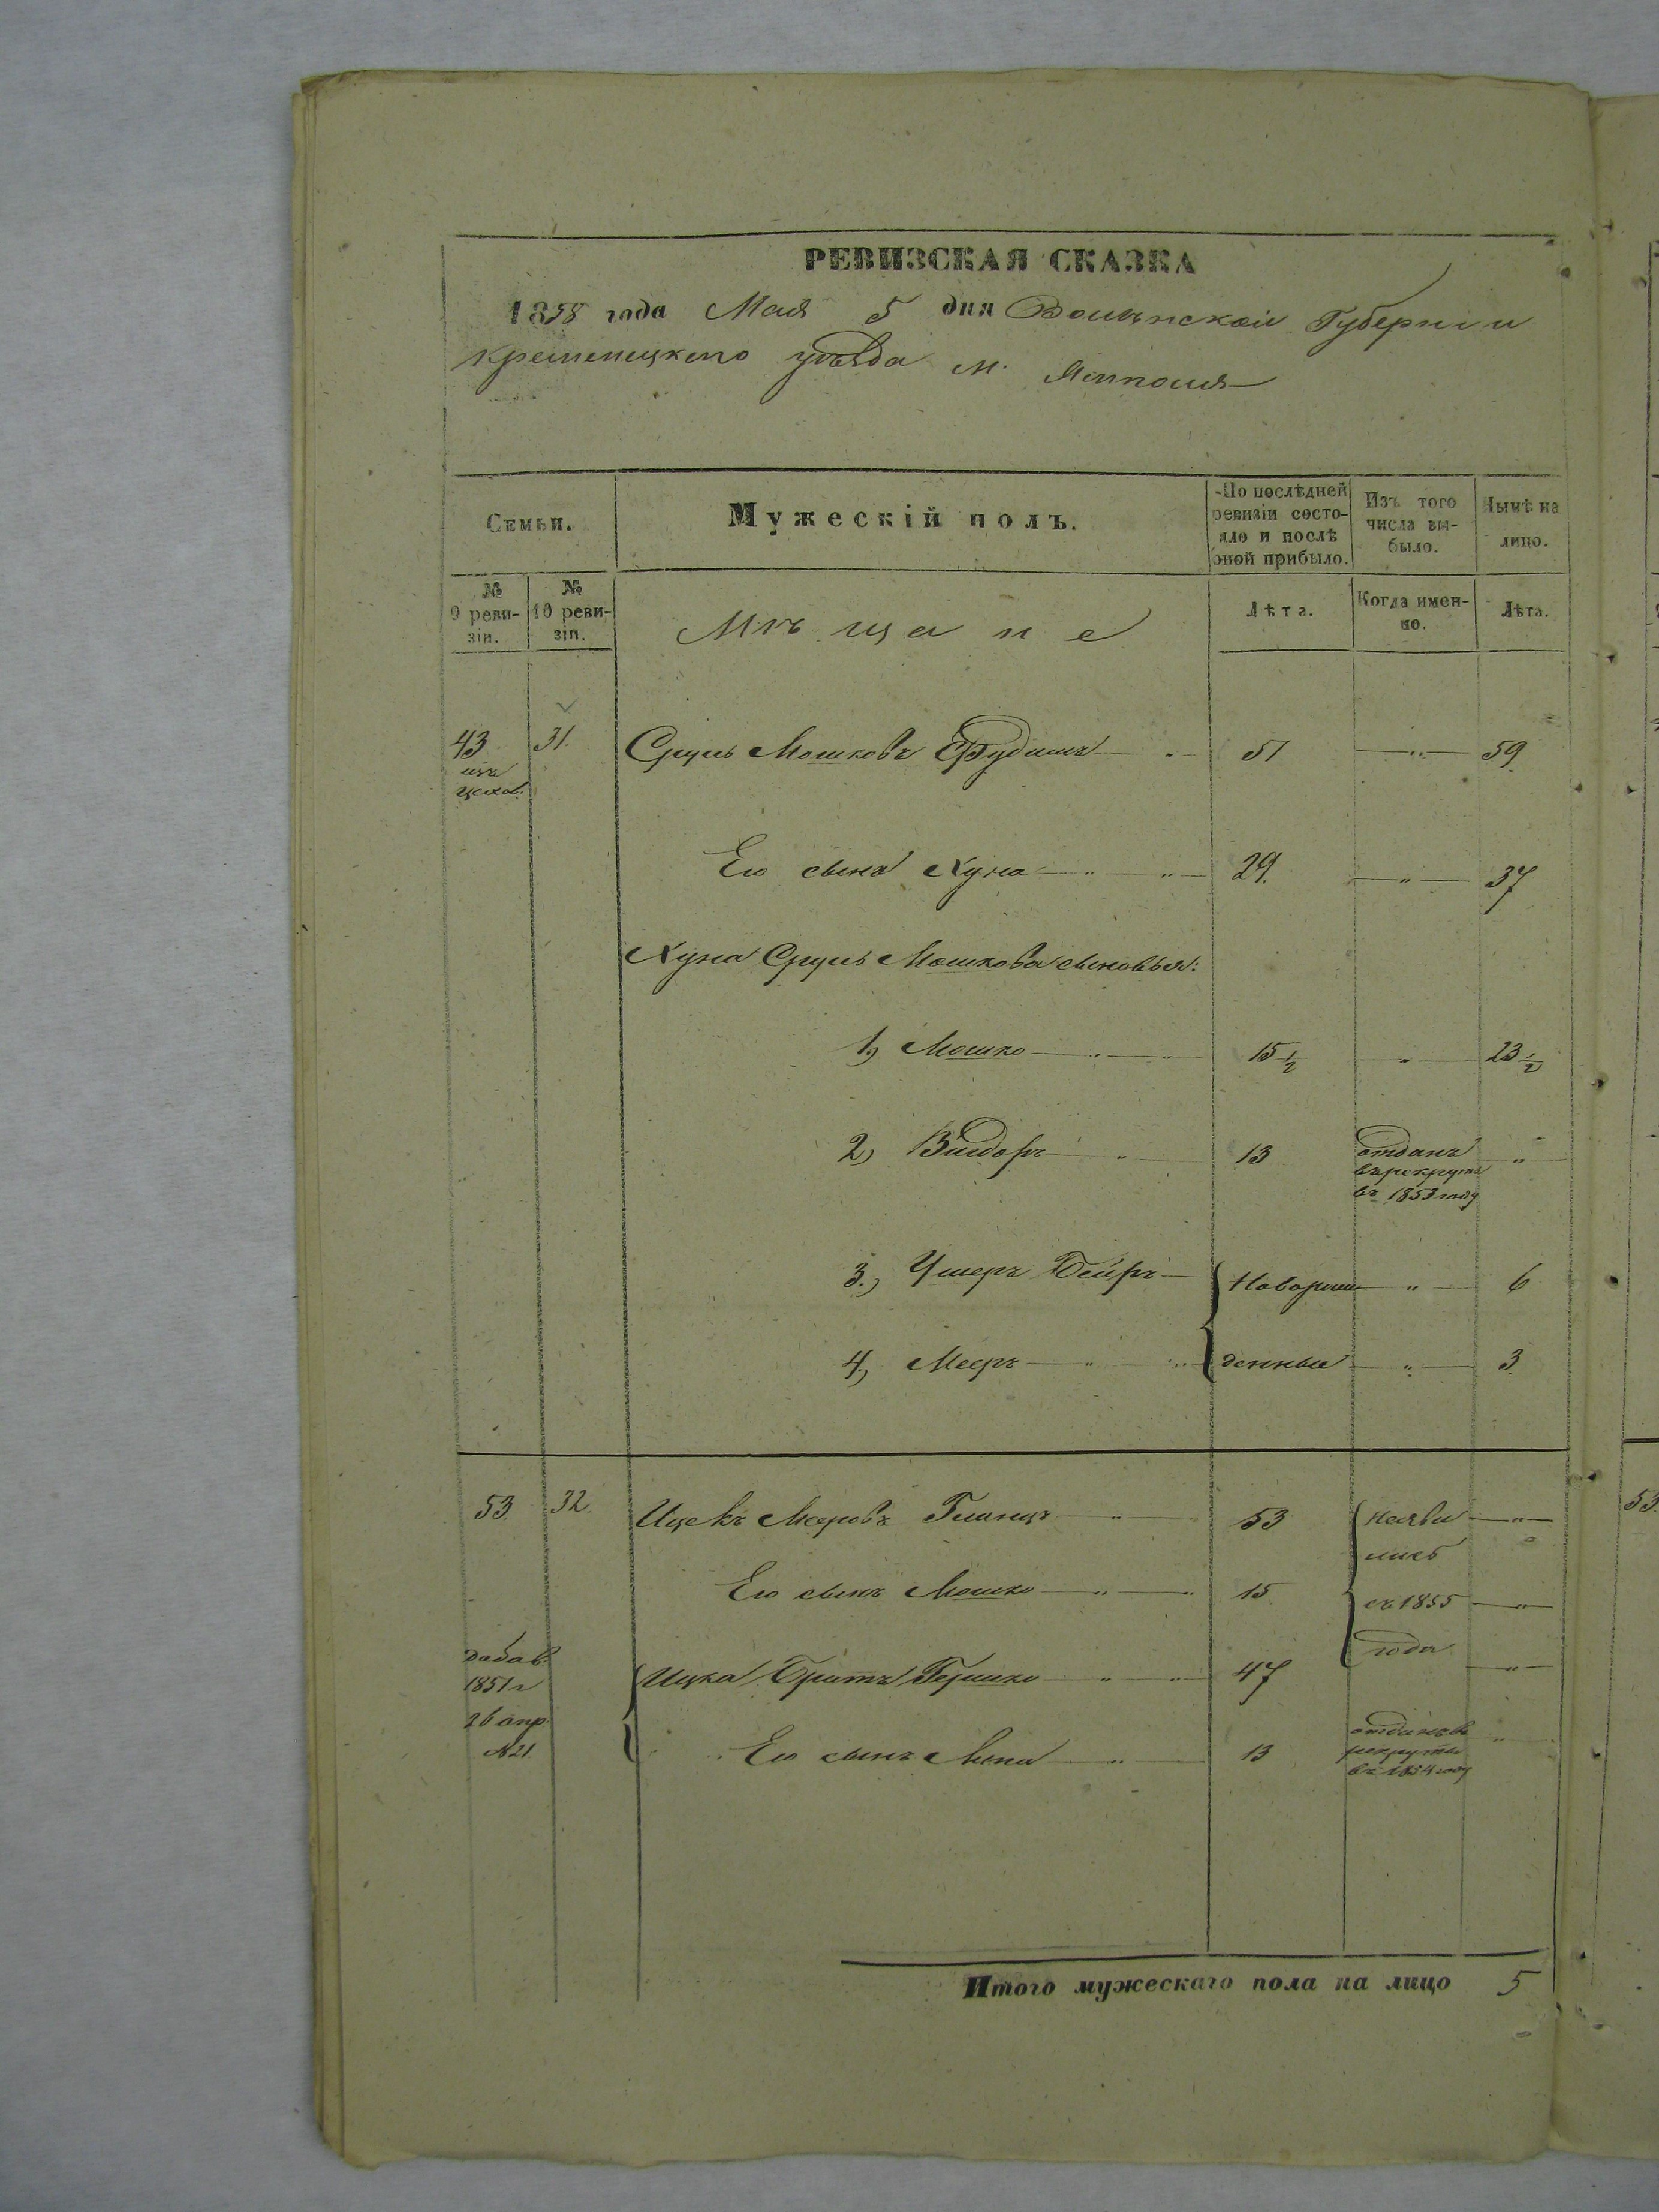 РЕВИЗСКАЯ СКАЗКА
1858 года Мая 5 дня Волынской Губернии
Кременецкаго уѣзда м. Ямполя
Семьи.
Мужескій полъ.
По послѣдней ревизіи состояло и послѣ оной прибыло.
Изъ того числа выбыло.
Нынѣ на лицо.
№ 9 ревизіи.
№ 10 ревизіи.
Мѣщане
Лѣта.
Когда именно.
Лѣта.
43 31. Сруль Мошковъ 51 59
изъ
цехов.
Его сынъ Хуна 29. 37
Хуна Сруль Мошкова сыновья:
1, Мошко 15 1/2 23 1/2
2, Вигдоръ 13 отданъ
въ рекруты
въ 1853 году
3., Ушеръ Бейръ Новорож 6
4, Мееръ денные 3
53 32. Ицекъ Меровъ Глинцъ 53 неяви
лись
Его сынъ Мошко 15 съ 1855
года
добав.
1851 г
26 апр.
№ 21.
Ицка Братъ Гершко 47
Его сынъ 13 отданъ въ
рекруты
въ 1854 году
Итого мужескаго пола на лицо 5
53